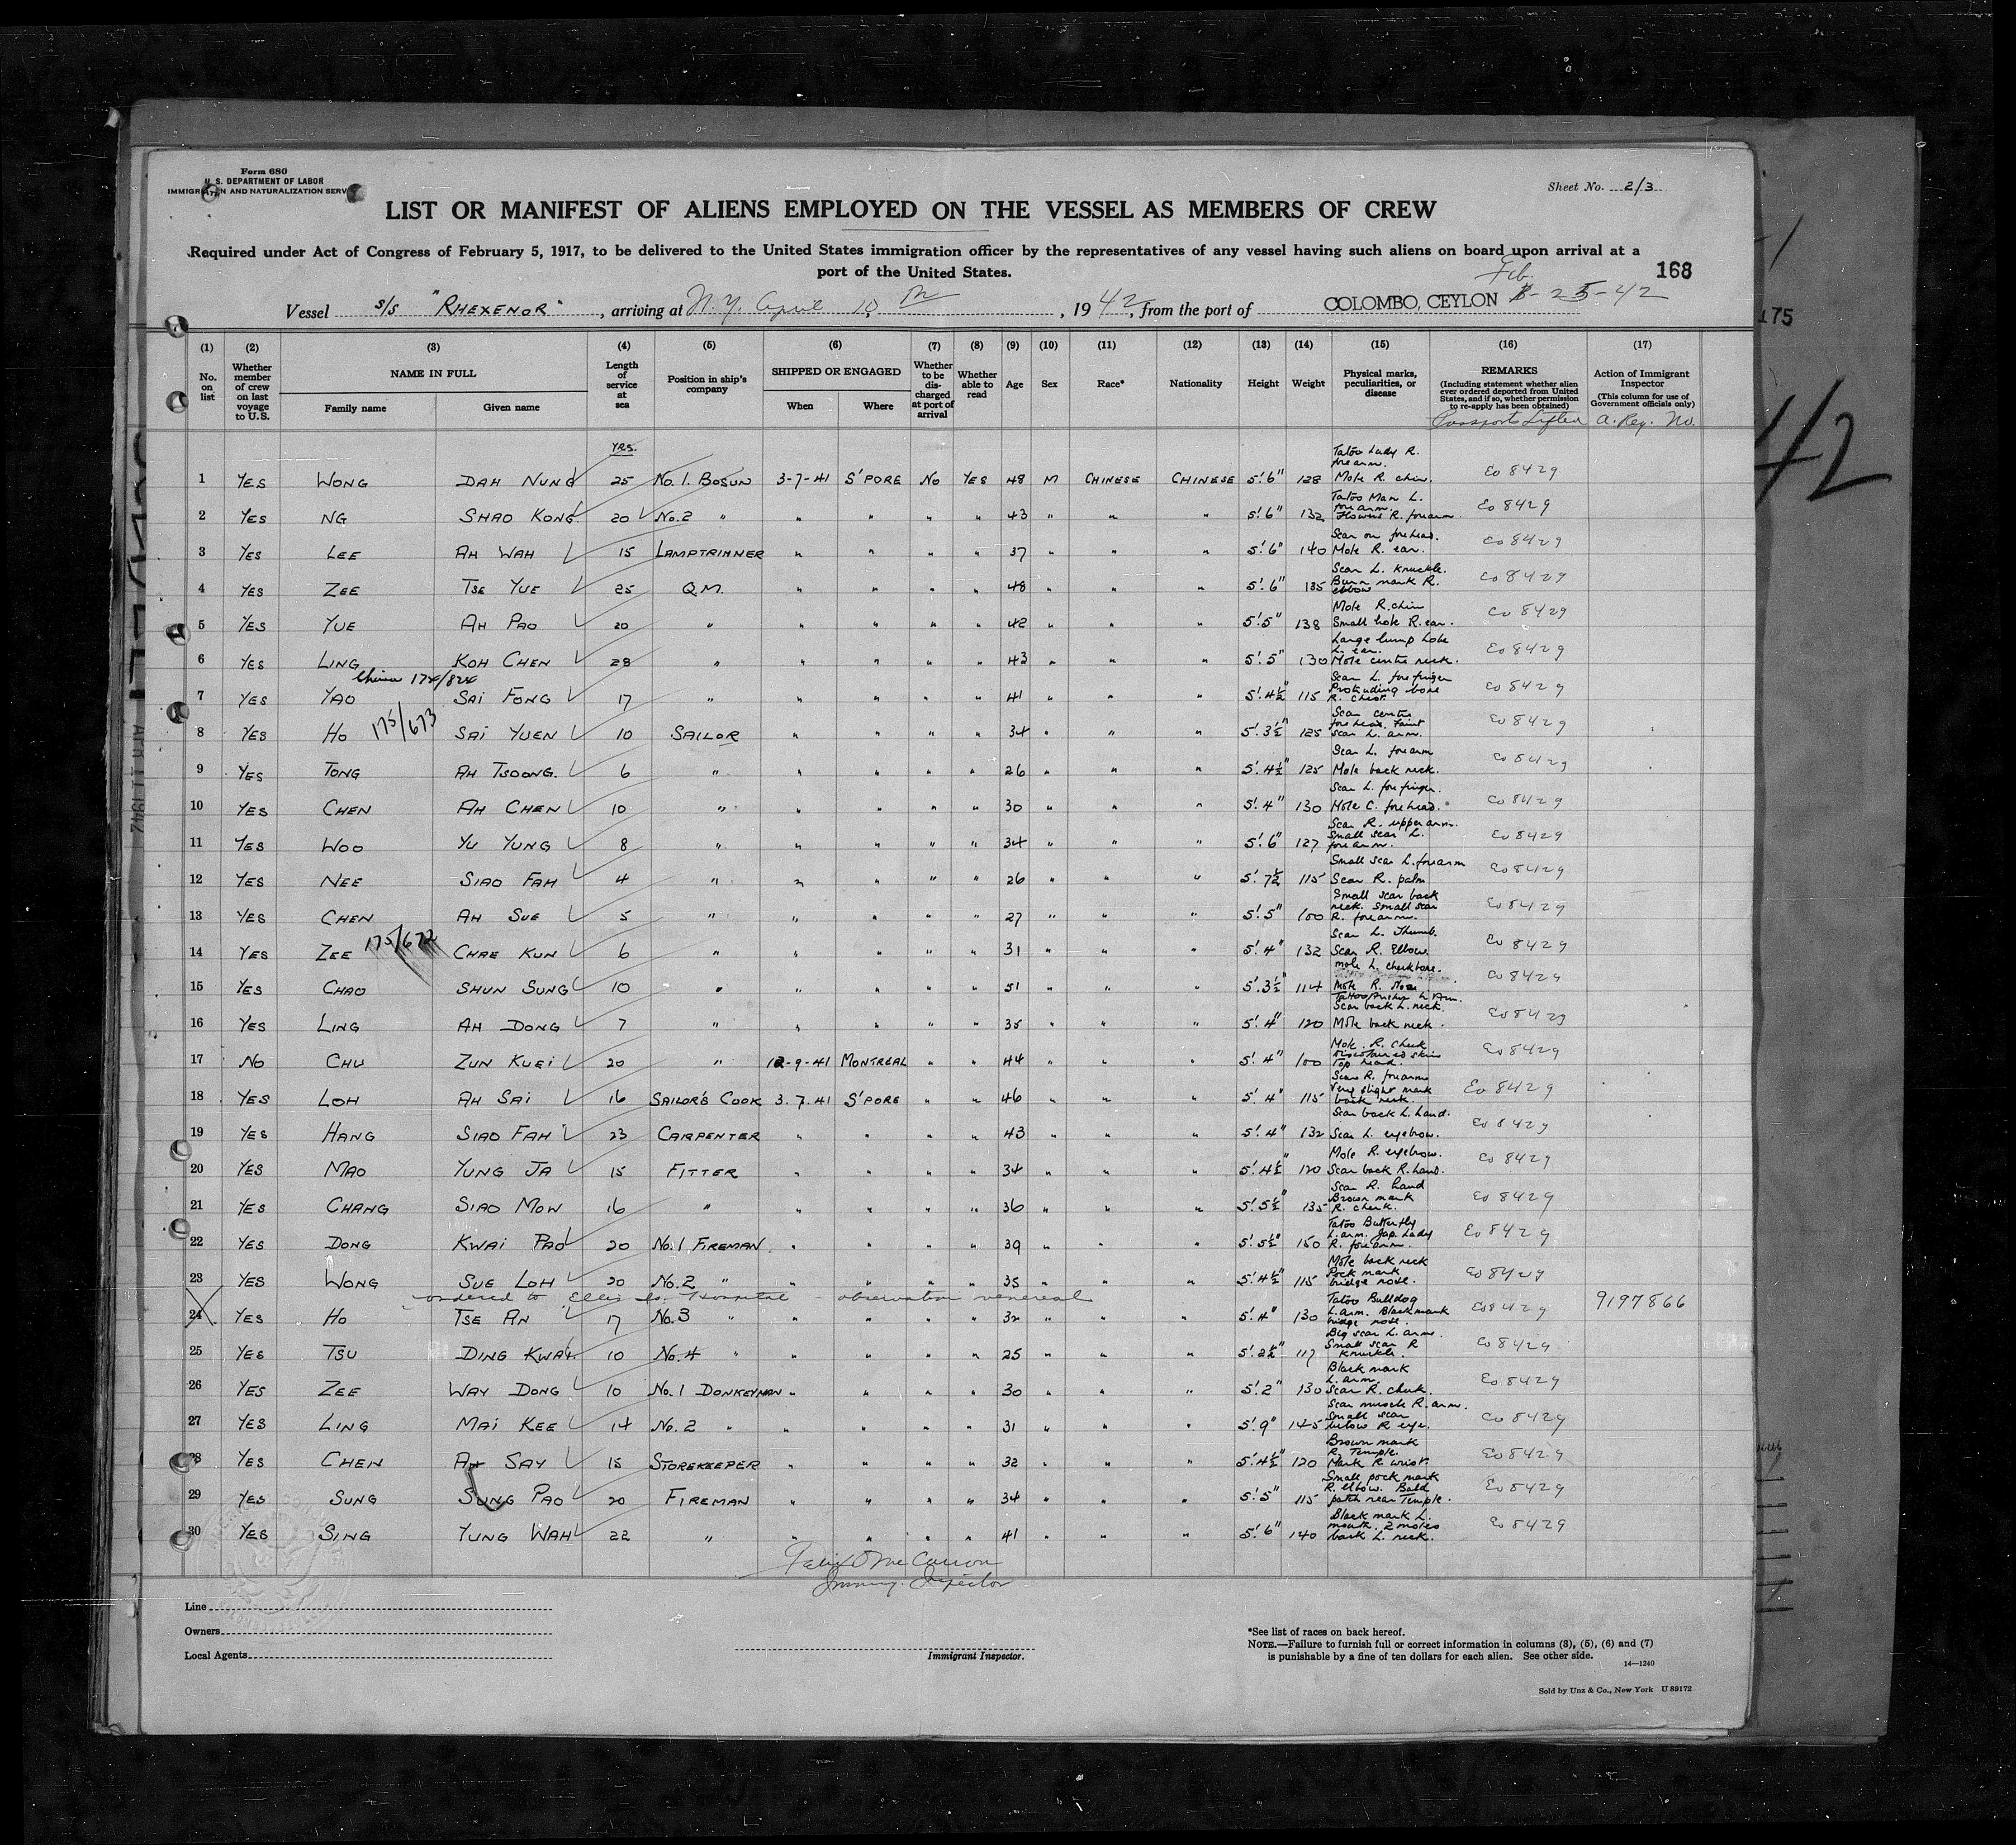 Form 680
U. S. DEPARTMENT OF LABOR
IMMIGRATION AND NATURALIZATION SERV
Sheet No. 2/3
LIST OR MANIFEST OF ALIENS EMPLOYED ON THE VESSEL AS MEMBERS OF CREW
Required under Act of Congress of February 5, 1917, to be delivered to the United States immigration officer by the representatives of any vessel having such aliens on board upon arrival at a
port of the United States.
168
Vessel s/s "RHEXENOR", arriving at N.Y. April 10 th, 1942, from the port of COLOMBO, CEYLON Feb. 25-42
175
42
(1) (2) (3) (4) (5) (6) (7) (8) (9) (10) (11) (12) (13) (14) (15) (16) (17)
No. on list
Whether member of crew on last voyage to U.S.
NAME IN FULL
Family name
Given name
Length of service at sea
Position in ship's company
SHIPPED OR ENGAGED
When
Where
Whether to be discharged at port of arrival
Whether able to read
Age
Sex
Race*
Nationality
Height
Weight
Physical marks, peculiarities, or disease
REMARKS
(Including statement whether alien ever ordered deported from United States, and if so, whether permission to re-apply has been obtained)
Passports Lifted
Action of Immigrant Inspector
(This column for use of Government officials only)
A. Reg. No.
YRS.
1 YES WONG DAH NUNG 25 No. 1. BOSUN 3-7-41 S'PORE NO YES 48 M CHINESE CHINESE 5'.6" 128 Tatoo Lady R. forearm. Mole R. chin. Eo 8429
2 YES NG SHAO KONG 20 No. 2 " " " " " 43 " " " 5'.6" 132 Tatoo Man L. forearm Flowers R. forearm. Eo 8429
3 YES LEE AH WAH 15 LAMPTRIMMER " " " " 37 " " " 5'.6" 140 Scar on forehead. Mole R. ear. Eo 8429
4 YES ZEE TSE YUE 25 Q.M. " " " " 48 " " " 5'.6" 135 Scar L. Knuckle. Burn mark R. elbow Eo 8429
5 YES YUE AH PAO 20 " " " " " 42 " " " 5'.5" 138 Mole R. chin Small hole R. ear. Eo 8429
6 YES LING KOH CHEN 28 " " " " " 43 " " " 5'.5" 130 Large lump Lobe L. ear. Mole centre neck. Eo 8429
7 YES YAO SAI FONG 17 " " " " " 41 " " " 5'.4½" 115 Scar L. forefinger Protruding bone R. chest. Eo 8429
8 YES HO 175/673 SAI YUEN 10 SAILOR " " " " 34 " " " 5'.3½" 125 Scar centre forehead. Faint scar L. arm. Eo 8429
9 YES TONG AH TSOONG. 6 " " " " " 26 " " " 5'.4½" 125 Scar L. forearm Mole back neck. Eo 8429
10 YES CHEN AH CHEN 10 " " " " " 30 " " " 5'.4" 130 Scar L. forefinger. Mole C. forehead. Eo 8429
11 YES WOO YU YUNG 8 " " " " " 34 " " " 5'.6" 127 Scar R. upper arm. Small scar L. forearm. Eo 8429
12 YES NEE SIAO FAH 4 " " " " " 26 " " " 5'.7½" 115 Small scar L. forearm Scar R. palm Eo 8429
13 YES CHEN AH SUE 5 " " " " " 27 " " " 5'.5" 100 Small scar back neck. Small scar R. forearm. Eo 8429
14 YES ZEE 175/672 CHAE KUN 6 " " " " " 31 " " " 5'.4" 132 Scar L. Thumb. Scar R. Elbow Eo 8429
15 YES CHAO SHUN SUNG 10 " " " " " 51 " " " 5'.3½" 114 mole L. cheekbone. Mole R. Nose Tattoo L. Arm. Eo 8429
16 YES LING AH DONG 7 " " " " " 35 " " " 5'.4" 120 Scar back L. neck. Mole back neck. Eo 8429
17 NO CHU ZUN KUEI 20 " 12-9-41 MONTREAL " " 44 " " " 5'.4" 100 Mole R. Cheek skin Top head. Eo 8429
18 YES LOH AH SAI 16 SAILOR'S COOK 3.7.41 S'PORE " " 46 " " " 5'.4" 115 Scar R. forearm Very slight mark back neck. Eo 8429
19 YES HANG SIAO FAH 23 CARPENTER " " " " 43 " " " 5'.4" 132 Scar back L. hand. Scar L. eyebrow. Eo 8429
20 YES MAO YUNG JA 15 FITTER " " " " 34 " " " 5'.4½" 120 Mole R. eyebrow. Scar back R. hand. Eo 8429
21 YES CHANG SIAO MOW 16 " " " " " 36 " " " 5'.5½" 135 Scar R. hand Brown mark R. cheek. Eo 8429
22 YES DONG KWAI PAO 20 No. 1 FIREMAN " " " " 39 " " " 5'.5½" 150 Tatoo Butterfly L. arm. Jap. Lady R. forearm. Eo 8429
23 YES WONG SUE LOH 20 No. 2 " " " " " 35 " " " 5'.4½" 115 Mole back neck Pock mark bridge nose. Eo 8429
ordered to Ellis Is. Hospital - observation venereal
24 YES HO TSE AN 17 No. 3 " " " " " 32 " " " 5'.4" 130 Tatoo Bulldog L. arm. Black mark bridge nose. Eo 8429 9197866
25 YES TSU DING KWAI 10 No. 4 " " " " " 25 " " " 5'.2½" 117 Big scar L. arm. Small scar R Knuckle. Eo 8429
26 YES ZEE WAY DONG 10 No. 1 DONKEYMAN " " " " 30 " " " 5'.2" 130 Black mark L. arm. Scar R. cheek. Eo 8429
27 YES LING MAI KEE 14 No. 2 " " " " " 31 " " " 5'.9" 145 Scar muscle R. arm. Small scar below R eye. Eo 8429
28 YES CHEN AH SAY 15 STOREKEEPER " " " " 32 " " " 5'.4½" 120 Brown mark R. Temple. Mark R wrist. Eo 8429
29 YES SUNG SUNG PAO 20 FIREMAN " " " " 34 " " " 5'.5" 115 Small pock mark R. elbow. Bald patch near Temple. Eo 8429
30 YES SING YUNG WAH 22 " " " " " 41 " " " 5'.6" 140 Black mark L. mouth. 2 moles back L. neck. Eo 8429
Immig. Inspector
Line
Owners
Local Agents
Immigrant Inspector.
*See list of races on back hereof.
NOTE.—Failure to furnish full or correct information in columns (3), (5), (6) and (7)
is punishable by a fine of ten dollars for each alien. See other side.
14—1240
Sold by Unz & Co., New York U 89172